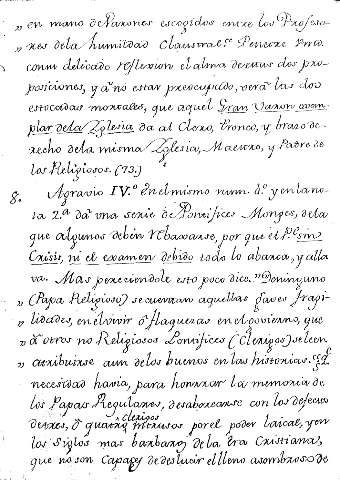 „ en mano de Varones escogidos entre los Profeso-
„ res de la humildad Claustral.
con delicada reflexion el alma de estas dos pro-
posiciones, y à no estar preocupado, verà las dos
estocadas mortales, que aquel Gran Varon exem-
plar de la Yglesia da al Clero, tronco, y brazo de-
recho de la misma Yglesia, Maestro, y Padre de
los Religiosos. (73.)
8. Agravio IV.º en el mismo num. dº. y en la no-
ta 2.ª dà una serie de Pontifices Monges, de la
que algunos deben rebaxarse, por que el
Crisis, ni el examen debido todo lo abarca, y alla
va. Mas pareciendole esto poco dice. „De ninguno
„ (Papa Religioso) se cuentan aquellas graves fragi-
„ lidades, en el vivir ò flaquezas en el govierno, que
„ à otros no Religiosos Pontifices (Clerigos) se leen
„ atribuirse aun de los buenos en las historias.
necesidad havia, para honrar la memoria de
los Papas Regulares, de saborearse con los defectos
de tres, ò quatro Clerigos intrusos por el poder laical, y en
los siglos mas barbaros de la Era Cristiana,
que no son capaces de deslucir el lleno asombroso de